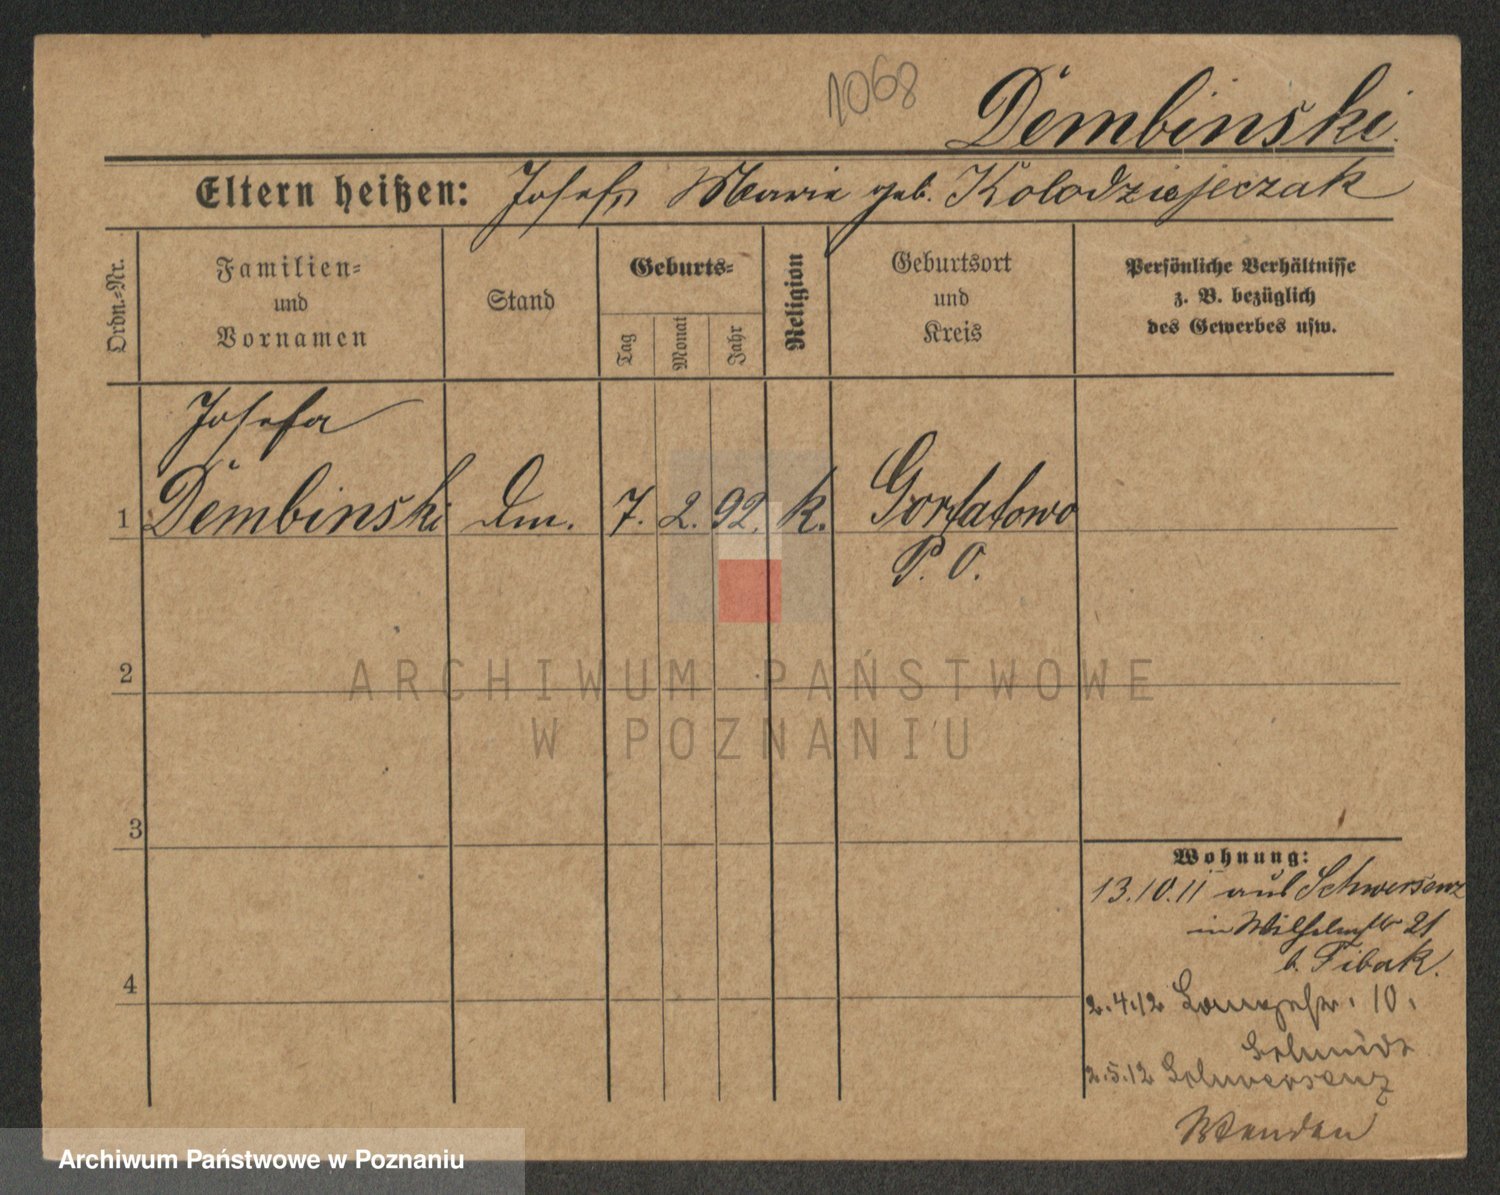 1068
Dembinski.
Eltern heißen: Josef, Marie geb. Kolodziejeczak
Ordn.-Nr.
Familien-
und
Vornamen
Stand
Geburts-
Tag
Monat
Jahr
Religion
Geburtsort
und
Kreis
Persönliche Verhältnisse
z. B. bezüglich
des Gewerbes usw.
Josefa
1 Dembinski Dm. 7. 2. 92. k. Gortatowo
P. O.
2
3
4
Wohnung:
13.10.11 aus Schwersenz
in Wilhelmstr 21
b. Fibak.
2.4.12 10.
Schmidt
2.5.12 Schwersenz
Wenden
ARCHIWUM PAŃSTWOWE
W POZNANIU
Archiwum Państwowe w Poznaniu